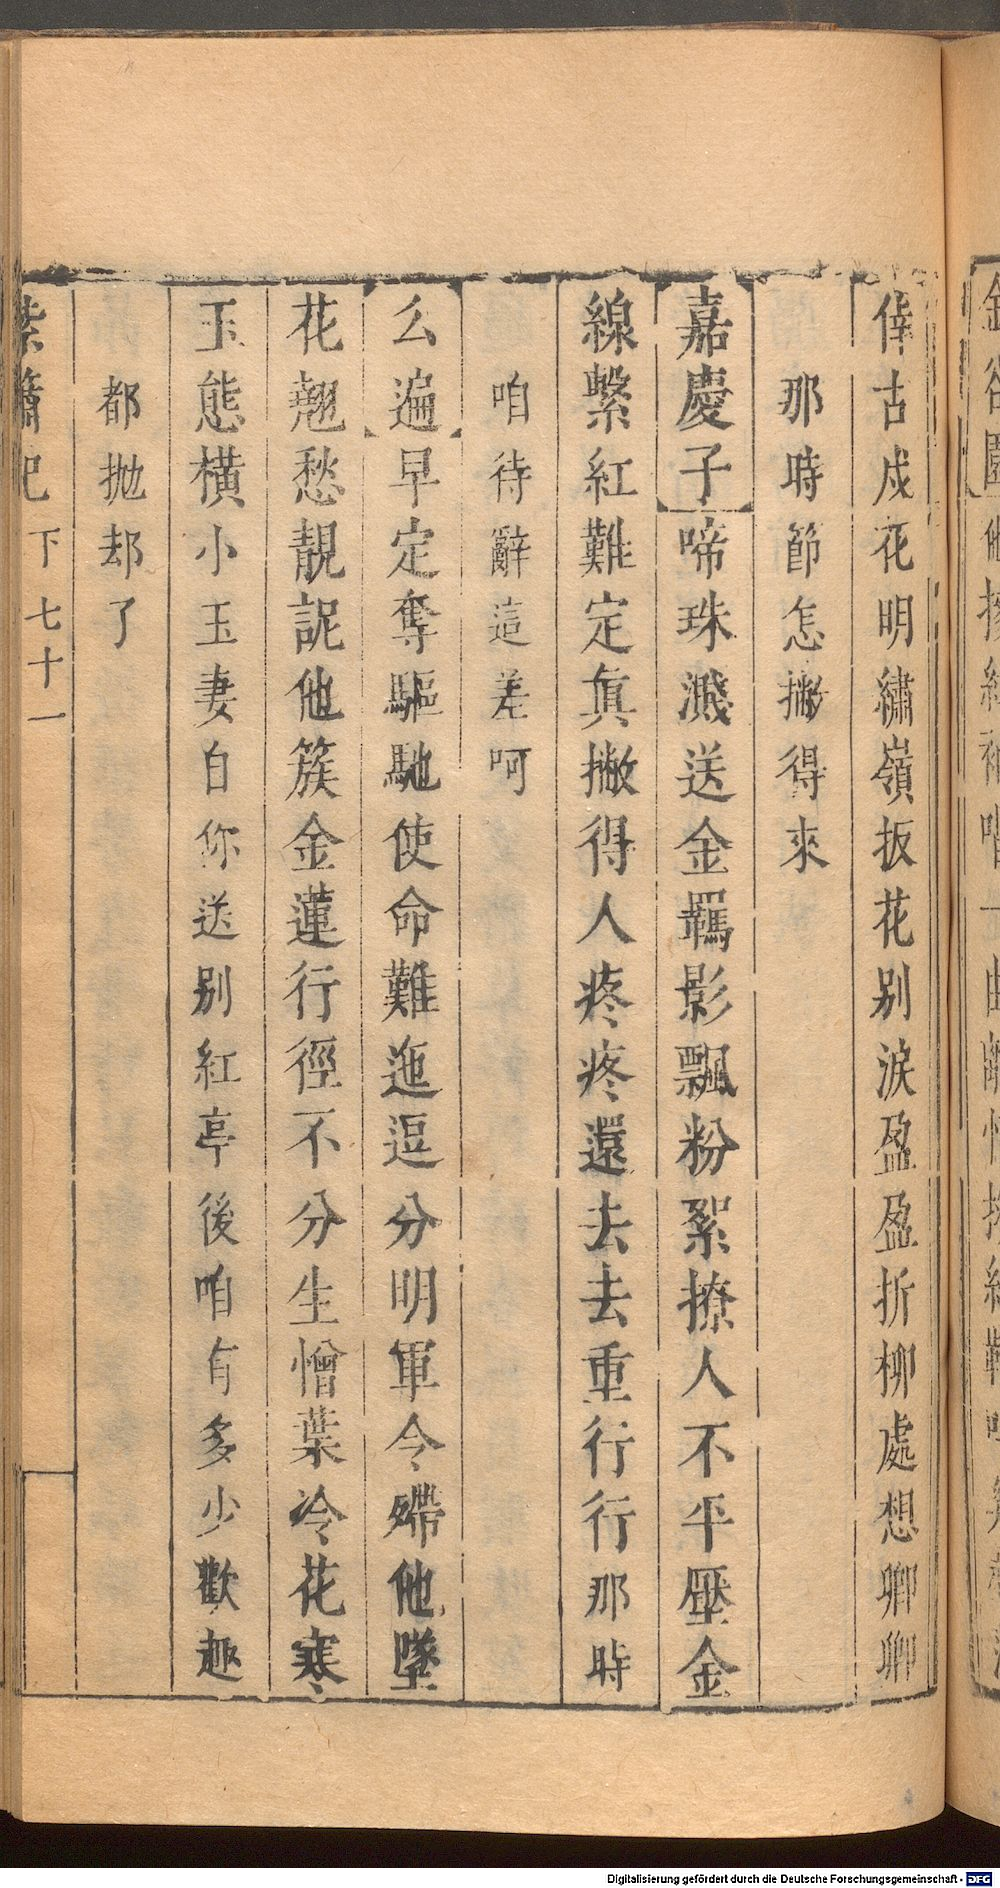 倖古戍花明繡嶺扳花别淚盈盈折柳處想卿卿
那時節怎撇得來
嘉慶子啼珠濺送金羈影飄粉絮撩人不平壓金
線繫紅難定眞撇得人疼疼還去去重行行那時
咱待辭這差呵
么遍早定奪驅馳使命難迤逗分明軍令殢他墜
花翹愁靚
他簇金蓮行徑不分生憎葉冷花寒
玉態橫小玉妻白你送别紅亭後咱有多少歡趣
都抛却了
紫簫記 下 七十一
Digitalisierung gefördert durch die Deutsche Forschungsgemeinschaft - DFG